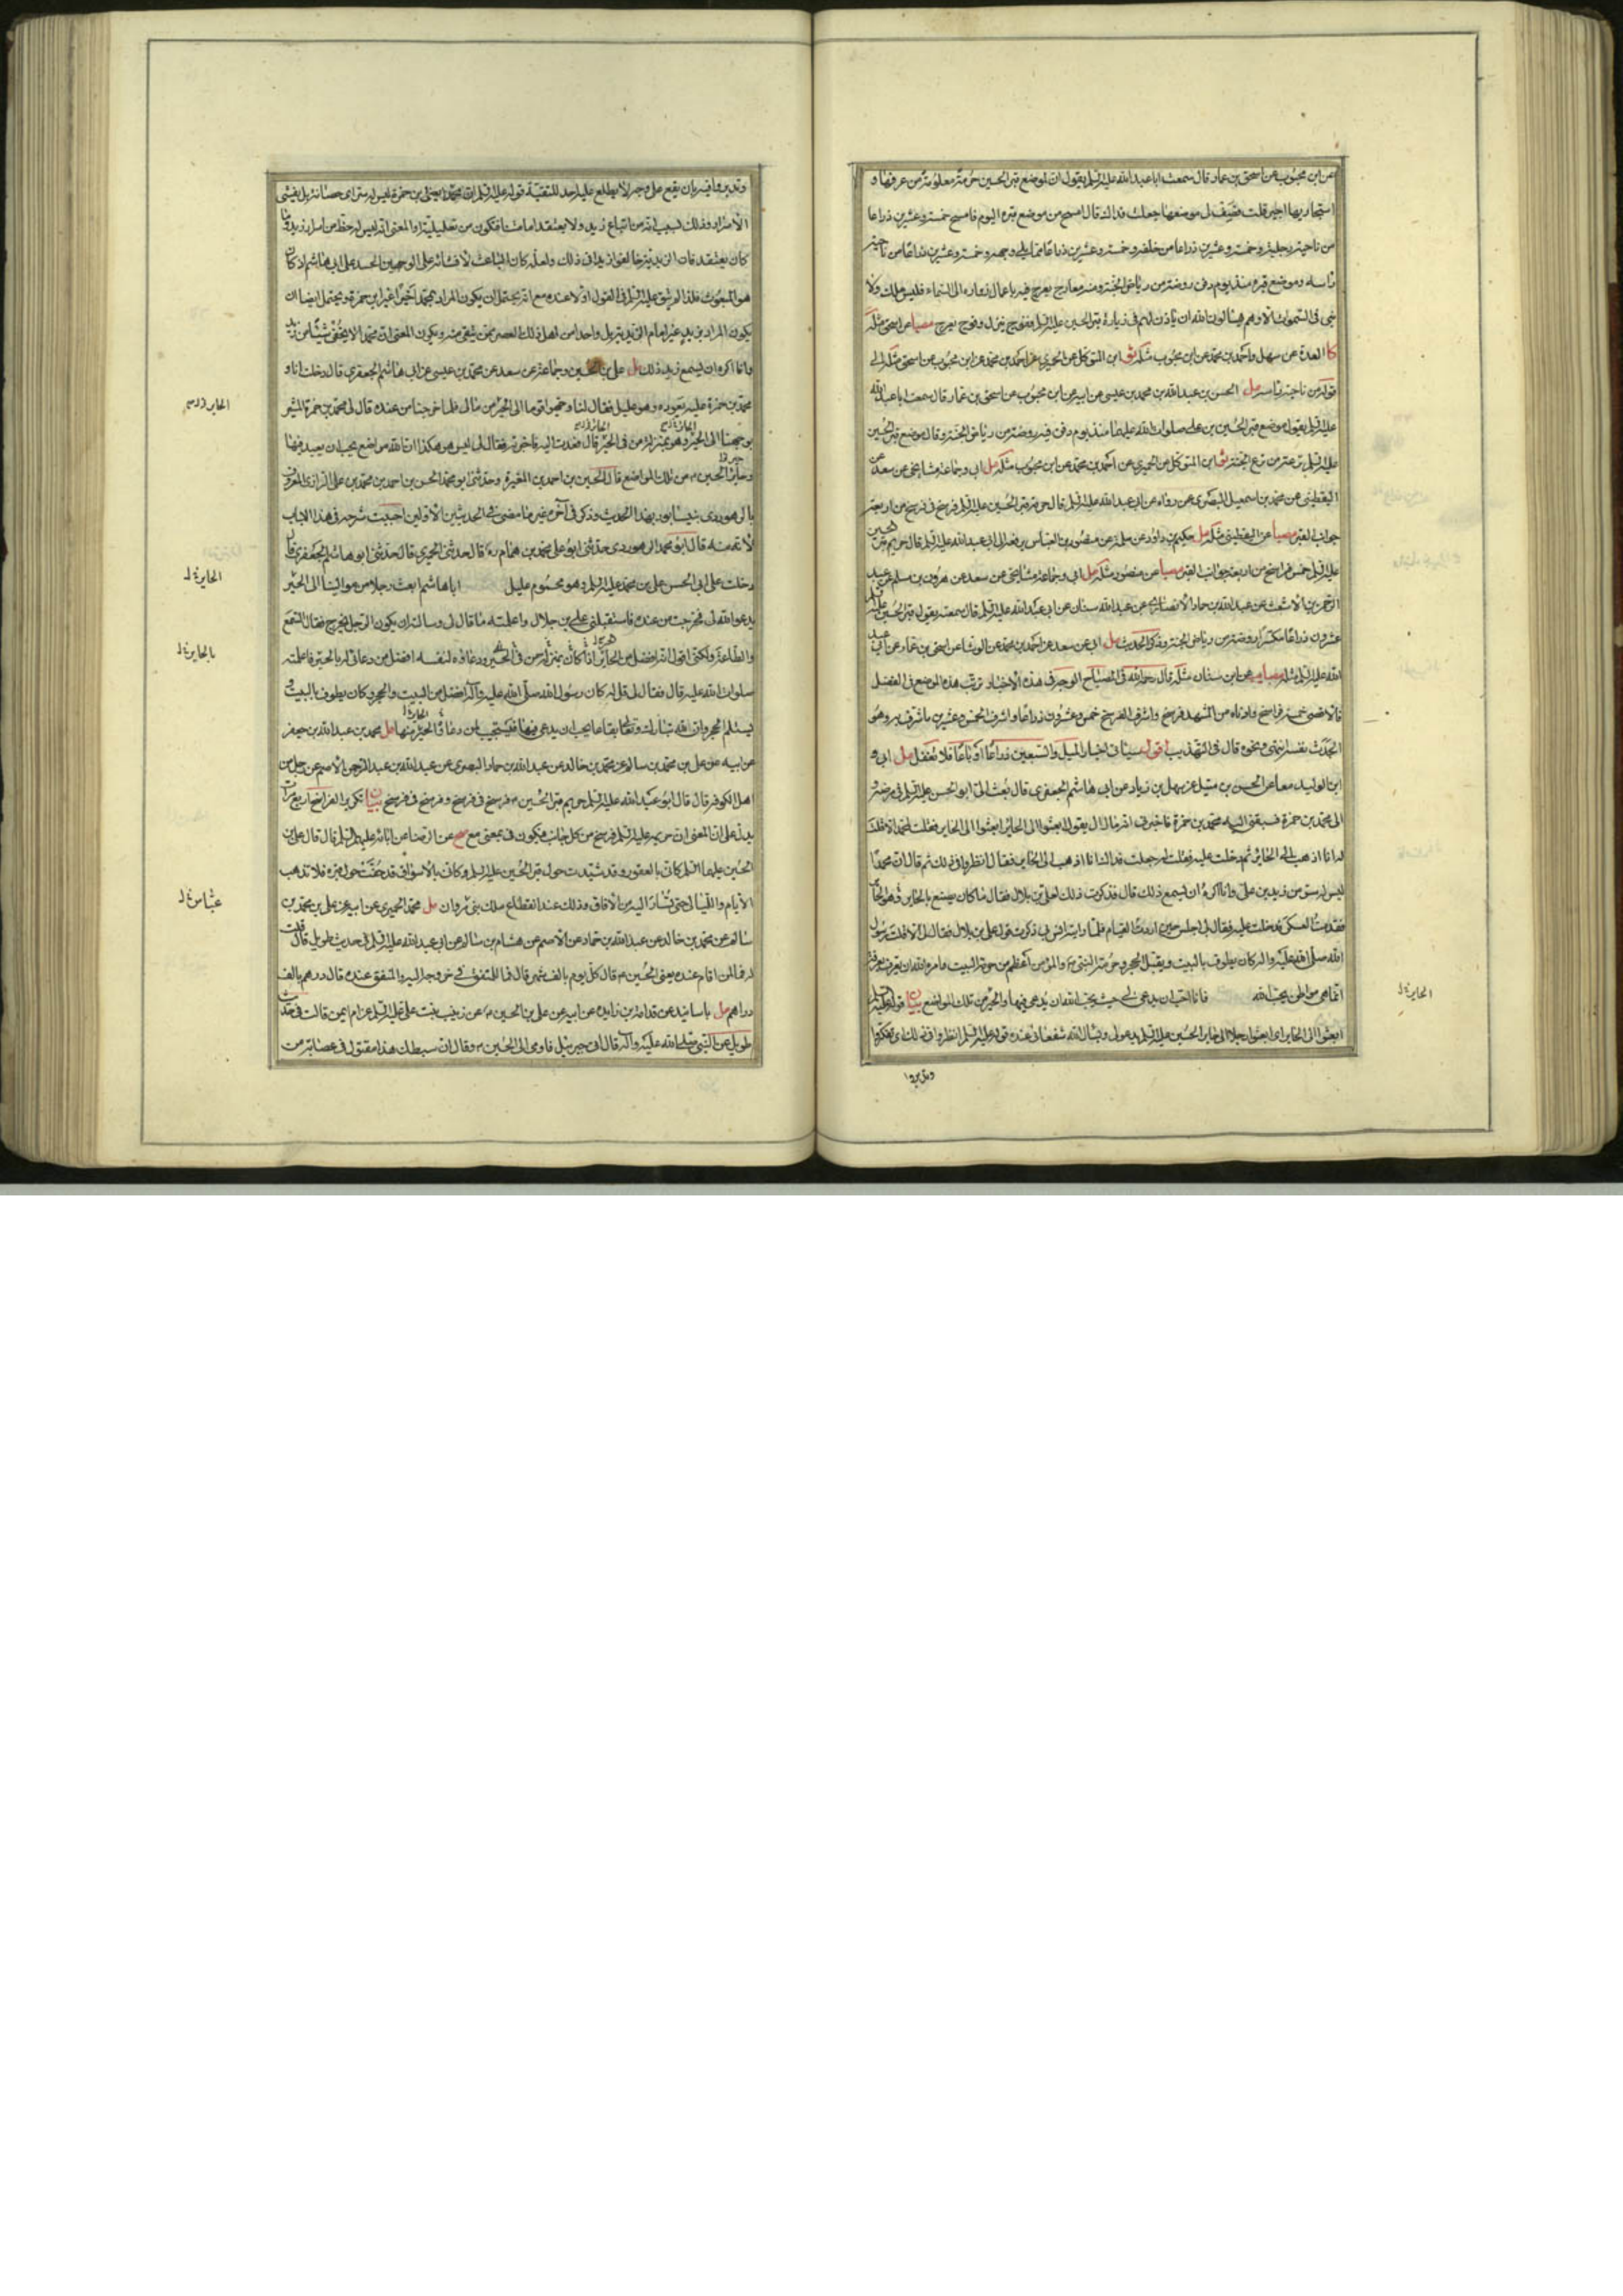 عن ابن محبوب عن اسحق بن عمار قال سمعت ابا عبد الله عليه السلم يقول ان لموضع قبر الحسين حرمة معلومة من عرفها و
استجار بها اجير قلت فصف لى موضعها جعلت فداك قال امسح من موضع قبره اليوم فامسح خمسة وعشرين ذراعا
من ناحية رجليه وخمسة وعشرين ذراعا من خلفه وخمسة وعشرين ذراعا مما يلى وجهه وخمسة وعشرين ذراعا من ناحية
راسه وموضع قبره منذ يوم دفن روضة من رياض الجنة ومنه معراج يعرج فيه باعمال زواره الى السماء فليس ملك ولا
نبى فى السموات الا وهم يسالون الله ان ياذن لهم فى زيارة قبر الحسين عليه السلم ففوج ينزل وفوج يعرج مصبا عن اسحق مثله
كا العدة عن سهل واحمد بن محمد عن ابن محبوب مثله ثو ابن المتوكل عن الحميرى عن احمد بن محمد عن ابن محبوب عن اسحق مثله الى
قوله من ناحية راسه مل الحسن بن عبد الله بن محمد بن عيسى عن ابيه عن ابن محبوب عن اسحق بن عمار قال سمعت ابا عبد الله
عليه السلم يقول موضع قبر الحسين بن على صلوات الله عليهما منذ يوم دفن فيه روضة من رياض الجنة وقال موضع قبر الحسين
عليه السلم ترعة من ترع الجنة ثو ابن المتوكل عن الحميرى عن احمد بن محمد عن ابن محبوب مثله مل ابى وجماعة مشايخى عن سعد عن
اليقطينى عن محمد بن اسمعيل البصرى عن رواه عن ابى عبد الله عليه السلم قال حرمة قبر الحسين عليه السلم فرسخ فى فرسخ من اربعة
جوانب القبر مصبا عن اليقطينى مثله مل حكيم بن داود عن سلمة عن منصور بن العباس يرفعه الى ابى عبد الله عليه السلم قال حريم قبر الحسين
عليه السلم خمس فراسخ من اربعة جوانب القبر مصبا عن منصور مثله مل ابى وجماعة مشايخى عن سعد عن هرون بن مسلم عن عبد
الرحمن بن الاشعث عن عبد الله بن حماد الانصارى عن عبد الله سنان عن ابى عبد الله عليه السلم قال سمعته يقول قبر الحسين عليه السلم
عشرون ذراعا مكسرا روضة من رياض الجنة وذكر الحديث مل ابى عن سعد عن احمد بن محمد عن الوشا عن اسحق بن عمار عن ابى عبد
الله عليه السلم مثله مصبا يب عن ابن سنان مثله قال رحمه الله فى المصباح الوجه فى هذه الاخبار ترتب هذه المواضع فى الفضل
فالاقصى خمسة فراسخ وادناه من المشهد فرسخ واشرف الفرسخ خمس وعشرون ذراعا واشرف الخمس وعشرين ما شرف به وهو
الجدث نفسه انتهى ونحوه قال فى التهذيب اقول سياتى اخبار الميل والسبعين ذراعا او باعا فلا تغفل مل ابى و
ابن الوليد معا عن الحسن بن متيل عن سهل بن زياد عن ابى هاشم الجعفرى قال بعث الى ابو الحسن عليه السلم فى مرضه و
الى محمد بن حمزة فسبقنى اليه محمد بن حمزة فاخبرنى انه ما زال يقول ابعثوا الى الحاير ابعثوا الى الحاير فقلت لمحمد الا قلت
له انا اذهب الى الحاير ثم دخلت عليه فقلت له جعلت فداك انا اذهب الى الحاير فقال انظروا فى ذلك ثم قال ان محمدا
ليس له سر من زيد بن على وانا اكره ان يسمع ذلك قال فذكرت ذلك لعلى بن بلال فقال ما كان يصنع بالحاير وهو الحاير
فقدمت العسكر فدخلت عليه فقال لى اجلس حين اردت القيام فلما رايته انس بى ذكرت قول على بن بلال فقال لى الا قلت له رسول
الله صلى الله عليه واله كان يطوف بالبيت ويقبل الحجر وحرمة النبى والمؤمن اعظم من حرمة البيت وامره الله ان يقف بعرفة
انما هى مواطن يحب الله فانا احب ان يدعى لى حيث يحب الله ان يدعى فيها والحير من تلك المواضع بيان قوله عليه السلم
ابعثوا الى الحاير اى ابعثوا رجلا الى حاير الحسين عليه السلم يدعو لى ويسال الله شفعائى عنده قوله عليه السلم انظروا فى ذلك اى تفكروا
وتدبروا
الحاير خ ل
وتدبروا فيه بان يقع على وجه لا يطلع عليه احد للتقية قوله عليه السلم ان محمدا يعنى بن حمزة ليس له سر اى حصانة بل يفشى
الاسرار وذلك بسبب انه من اتباع زيد ولا يعتقد امامتنا فتكون من تعليلية او المعنى انه ليس له حظ من اسرار زيد وما
كان يعتقد فان الزيدية خالفوا زيدا فى ذلك ولعله كان الباعث لافشائه على الوجهين الحسد على ابى هاشم اذ كان
هو المبعوث فلذا لم يتق عليه السلم فى القول اولا عنده مع انه يحتمل ان يكون المراد بمحمد اخيرا غير ابن حمزة ويحتمل ايضا ان
يكون المراد بزيد غير امام الزيدية بل واحدا من اهل ذلك العصر ممن يتقى منه ويكون المعنى ان محمدا لا يخفى شيئا من زيد
وانا اكره ان يسمع زيد ذلك مل على بن الحسين وجماعة عن سعد عن محمد بن عيسى عن ابى هاشم الجعفرى قال دخلت انا و
محمد بن حمزة عليه نعوده وهو عليل فقال لنا وجهوا قوما الى الحير من مالى فلما خرجنا من عنده قال لى محمد بن حمزة المشير
يوجهنا الى الحير وهو بمنزلة من فى الحير قال فعدت اليه فاخبرته فقال لى ليس هو هكذا ان لله مواضع يحب ان يعبد فيها
وحاير الحسين من تلك المواضع قال الحسين بن احمد بن المغيرة وحدثنى ابو محمد الحسن بن احمد بن محمد بن على الرازى المعروف
بالوهوردى بنيسابور بهذا الحديث وذكر فى آخره غير ما مضى فى الحديثين الاولين احببت شرحه فى هذا الباب
لانه منه قال ابو محمد الوهوردى حدثنى ابو على محمد بن همام ره قال حدثنى الحميرى قال حدثنى ابو هاشم الجعفرى قال
دخلت على ابى الحسن على بن محمد عليه السلم وهو محموم عليل ابا هاشم ابعث رجلا من موالينا الى الحير
يدعو الله لى فخرجت من عنده فاستقبلنى على بن بلال واعلمته ما قال لى وسالته ان يكون الرجل يخرج فقال السمع
والطاعة ولكنى اقول انه افضل من الحاير اذا كان بمنزلة من فى الحير ودعاؤه لنفسه افضل من دعائى له بالحير فاعلمته
صلوات الله عليه قال فقال لى قل له كان رسول الله صلى الله عليه وآله افضل من البيت والحجر وكان يطوف بالبيت و
يستلم الحجر وان لله تبارك وتعالى بقاعا يحب ان يدعى فيها فيستجيب لمن دعاه والحير منها مل محمد بن عبد الله بن جعفر
عن ابيه عن على بن محمد بن سالم عن محمد بن خالد عن عبد الله بن حماد البصرى عن عبد الله بن عبد الرحمن الاصم عن رجل من
اهل الكوفة قال قال ابو عبد الله عليه السلم حريم قبر الحسين فرسخ فى فرسخ وفرسخ فى فرسخ بيان تكرير الفراسخ اربع مرات
يدل على ان المعنى ان حريمه عليه السلم فرسخ من كل جانب فيكون فى بمعنى مع صح عن الرضا عن ابائه عليهم السلم قال قال على بن
الحسين عليهما السلم كانى بالقصور وقد شيدت حول قبر الحسين عليه السلم وكانى بالاسواق قد حفت حول قبره فلا تذهب
الايام والليالى حتى يسار اليه من الافاق وذلك عند انقطاع ملك بنى مروان مل محمد الحميرى عن ابيه عن على بن محمد بن
سالم عن محمد بن خالد عن عبد الله بن حماد عن الاصم عن هشام بن سالم عن ابى عبد الله عليه السلم فى حديث طويل قال قلت
له فما لمن اقام عنده يعنى الحسين قال كل يوم بالف شهر قال فما للمنفق فى خروجه اليه والمنفق عنده قال درهم بالف
دراهم مل باسانيد عن قدامة بن زايدة عن ابيه عن على بن الحسين عن زينب بنت على عليه السلم عن ام ايمن قالت فى حديث
طويل عن النبى صلى الله عليه وآله قال اتى جبرئيل فاومى الى الحسين وقال ان سبطك هذا مقتول فى عصابة من
الحاير خ ل
بالحاير خ ل